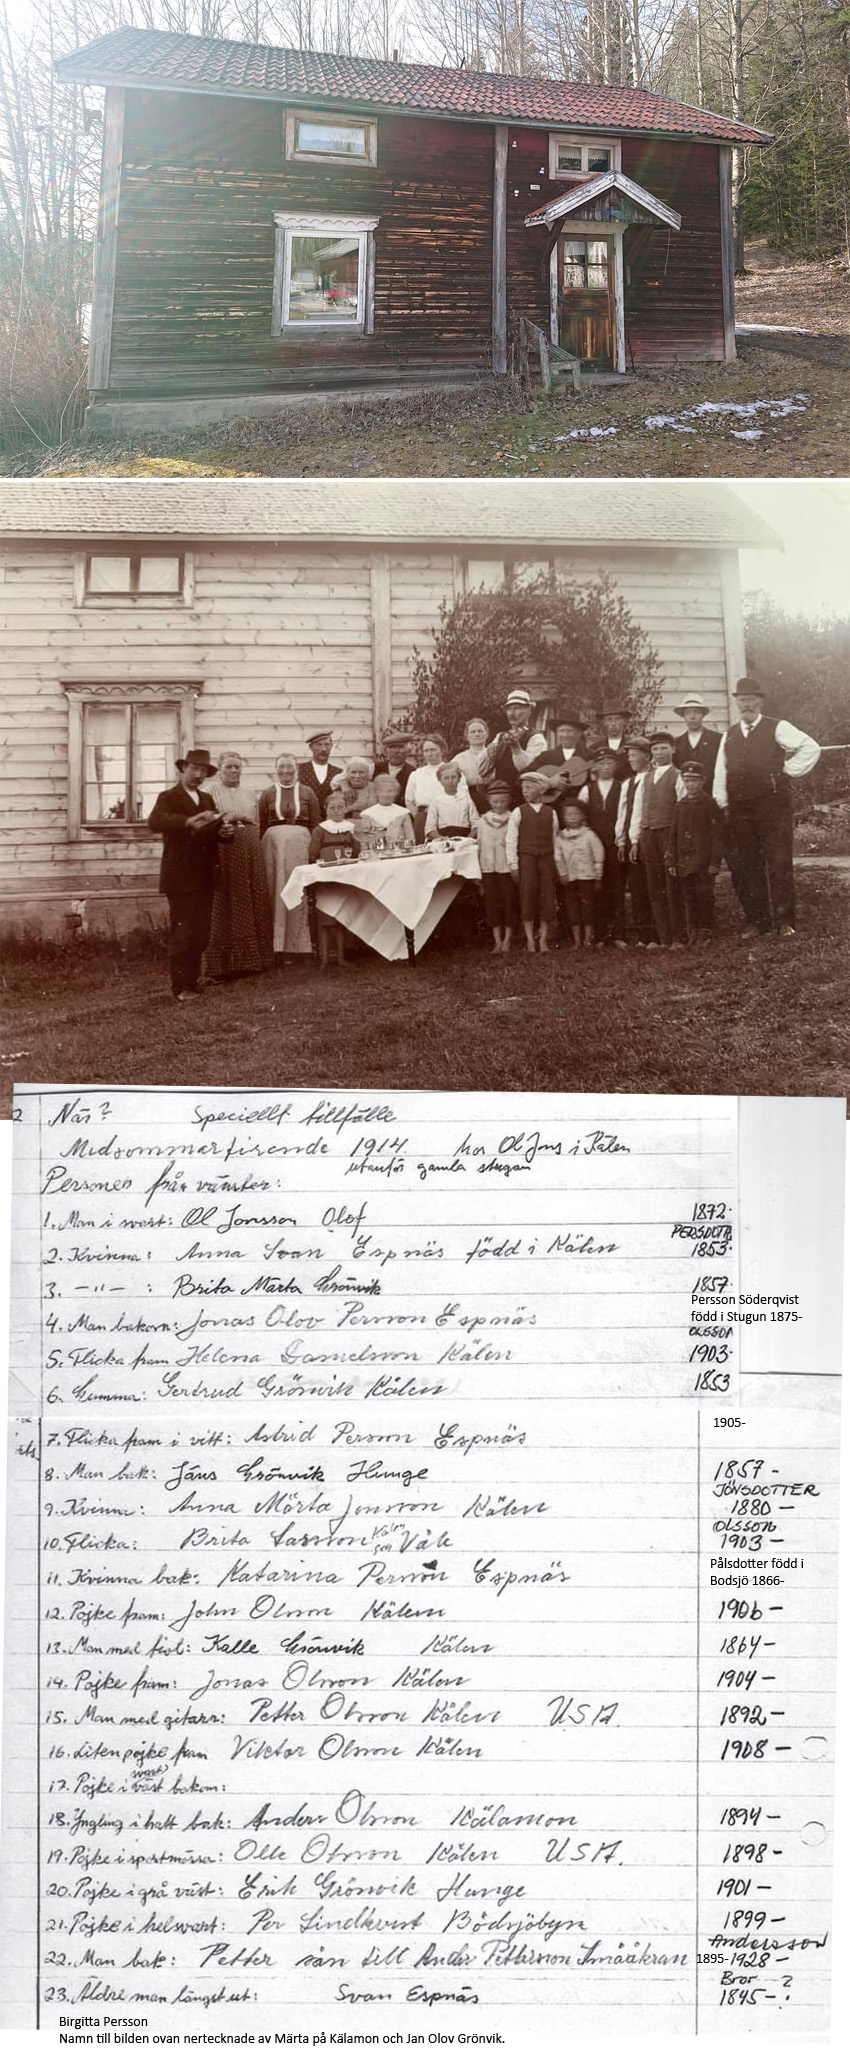 2 När? Speciellt tillfälle
Midsommarfirande 1914. hos Ol Jons i Kälen
utanför gamla stugan
Personer från vänster:
1. Man i svart: Ol Jonsson Olof 1872-
PERSDOTTR
2. Kvinna: Anna Svan Espnäs född i Kälen 1853-
3. -"- : Brita Märta Grönvik 1857-
Persson Söderqvist
född i Stugun 1875-
4. Man bakom: Jonas Olov Persson Espnäs
OLSSON
5. Flicka fram Helena Danielsson Kälen 1903-
6. Gumma: Gertrud Grönvik Kälen 1853
7. Flicka fram i vitt: Astrid Persson Espnäs 1905-
8. Man bak: Jöns Grönvik Hunge 1857-
JÖNSDOTTER
9. Kvinna: Anna Märta Jonsson Kälen 1880-
OLSSON
10. Flicka: Brita Larsson Kälen Våle 1903-
Pålsdotter född i
Bodsjö 1866-
11. Kvinna bak: Katarina Persson Espnäs
12. Pojke fram: John Olsson Kälen 1906-
13. Man med fiol: Kalle Grönvik Kälen 1864-
14. Pojke fram: Jonas Olsson Kälen 1904-
15. Man med gitarr: Petter Olsson Kälen USA. 1892-
16. Liten pojke fram Viktor Olsson Kälen 1908-
svart
17. Pojke i väst bakom:
18. Yngling i hatt bak: Anders Olsson Kälamon 1894-
19. Pojke i sportmössa: Olle Olsson Kälen USA. 1898-
20. Pojke i grå väst: Erik Grönvik Hunge 1901-
21. Pojke i helsvart: Per Lindkvist Bodsjöbyn 1899-
Andersson
22. Man bak: Petter son till Ander Pettersson Småäkran 1895-1928-
Bror ?
23. Äldre man längst ut: Svan Espnäs 1845-.
Birgitta Persson
Namn till bilden ovan nertecknade av Märta på Kälamon och Jan Olov Grönvik.